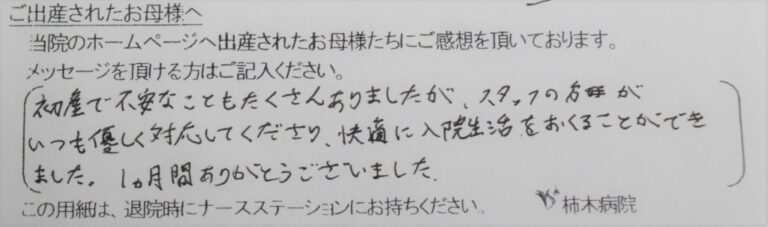 ご出産されたお母様へ
当院のホームページへ出産されたお母様たちにご感想を頂いております。
メッセージを頂ける方はご記入ください。
初産で不安なこともたくさんありましたが、スタッフの方々が
いつも優しく対応してくださり、快適に入院生活をおくることができ
ました。1ヵ月間ありがとうございました。
この用紙は、退院時にナースステーションにお持ちください。 柿木病院